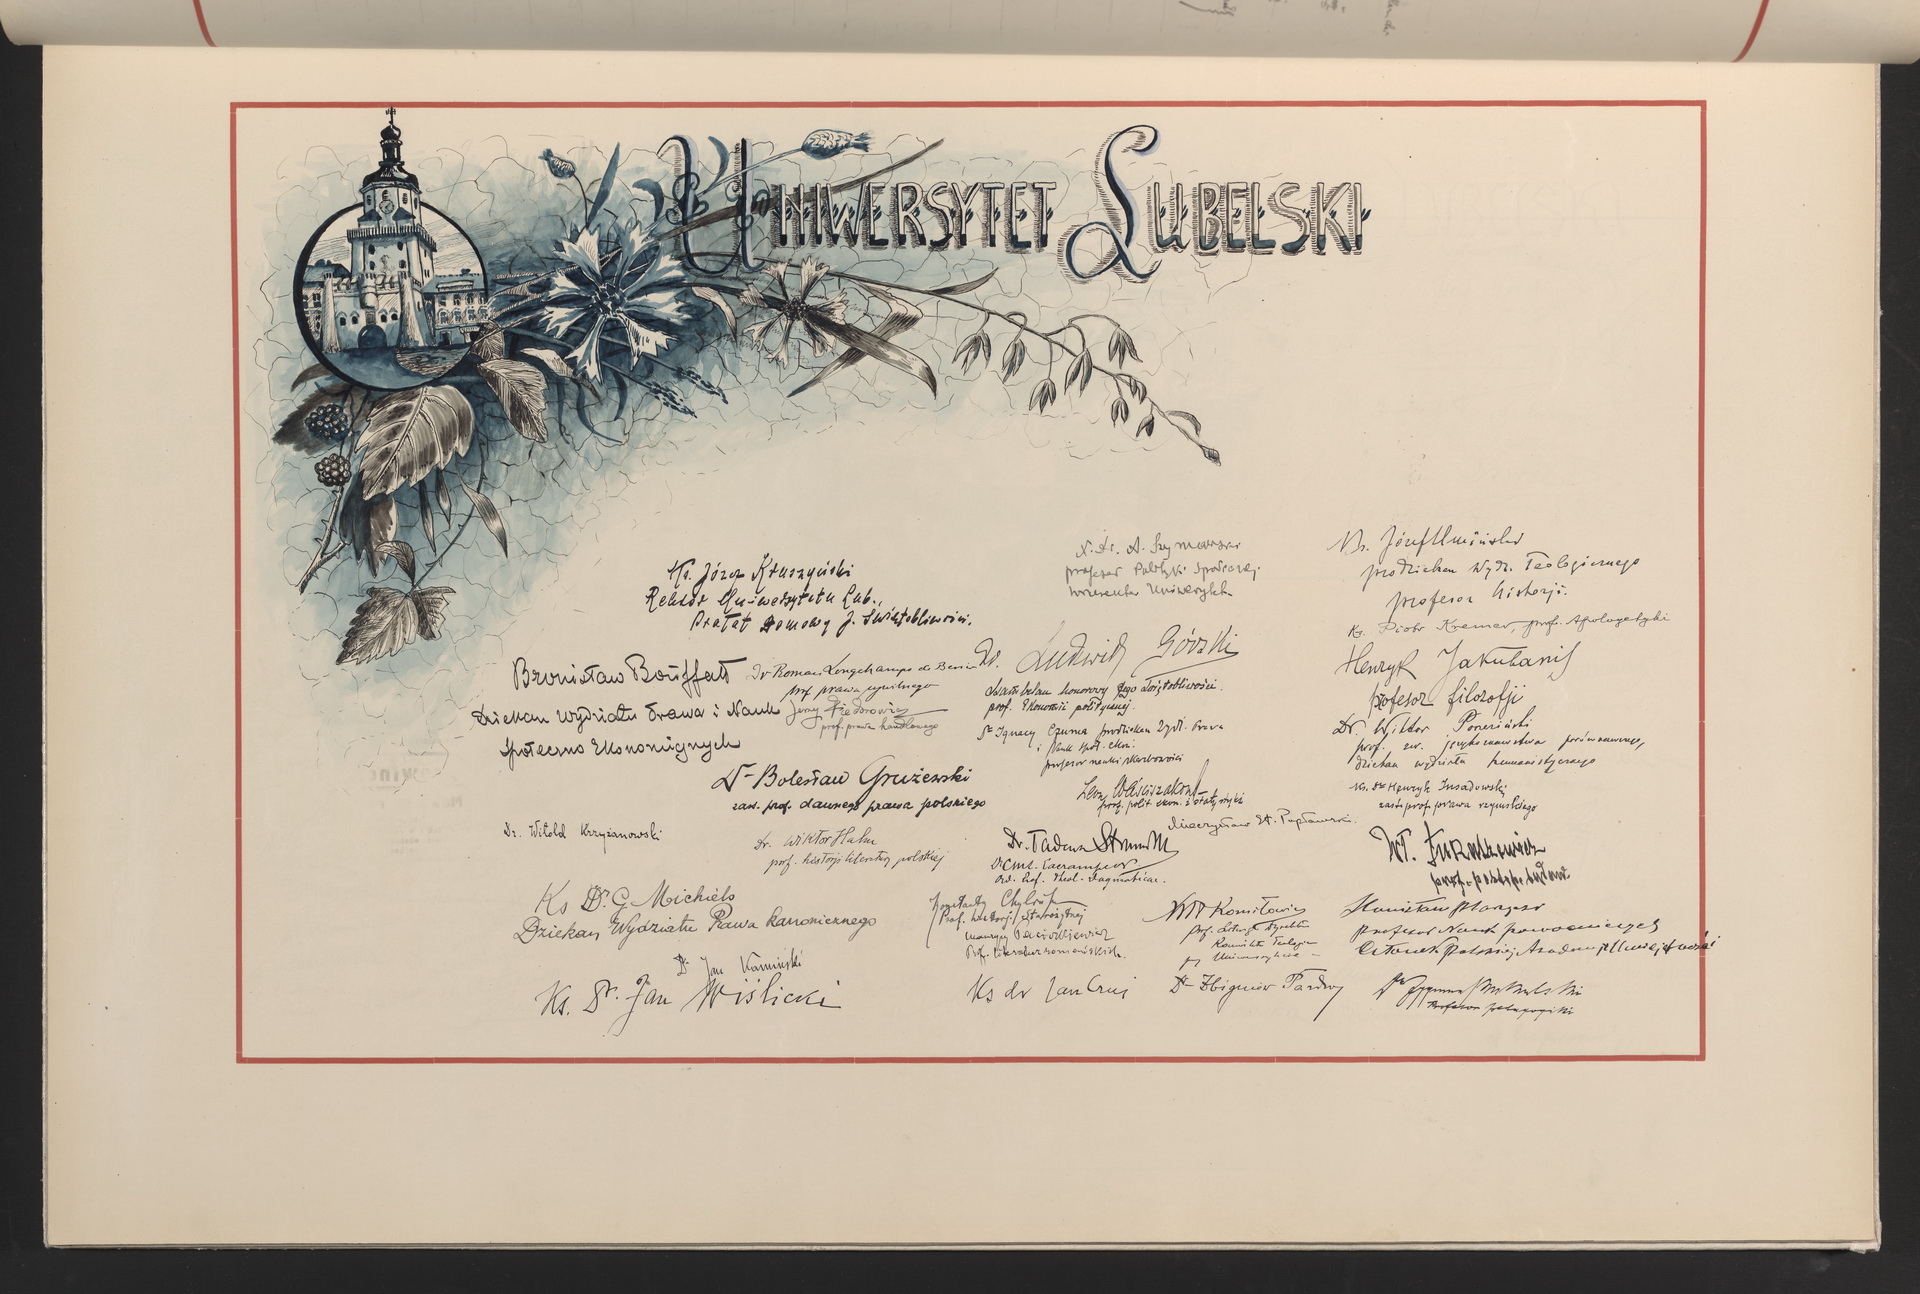 UNIWERSYTET LUBELSKI
Ks. Józef Kruszyński
Rektor Uniwersytetu Lub.,
Prałat Domowy J. Świątobliwości.
Bronisław Bouffałł
Dziekan Wydziału Prawa i Nauk
Społeczno Ekonomicznych
Dr Roman Longchamps de Berier
prof prawa cywilnego
Jerzy Fiedorowicz
prof. prawa handlowego
Dr Bolesław Grużewski
zast. prof. dawnego prawa polskiego
Dr. Witold Krzyżanowski
Dr. Wiktor Hahn
prof. historji literatury polskiej
Ks Dr. G. Michiels
Dziekan Wydziału Prawa kanonicznego
Dr Jan Kamiński
Ks. Dr. Jan Wiślicki
X. Dr. A. Szymański
profesor Polityki Społecznej
Uniwersytetu
Ks. Ludwik Górski
Szambelan honorowy Jego Świątobliwości.
prof. Ekonomii politycznej.
Dr Ignacy Czuma prodziekan Wydz. Prawa
i Nauk społ. ekon.
profesor nauki skarbowości
Leon Waściszakowski
prof. polit. ekon. i statystyki
Mieczysław St. Popławski
Dr. Tadeusz
Ord. Prof. Theol. Dogmaticae.
Konstanty Chyliński
Prof. historji starożytnej
Maurycy Paciorkiewicz
Prof. literatur romańskich.
Ks dr Jan Cruj
Dr Zbigniew
Ks. Józef Umiński
prodziekan Wydz. Teologicznego
profesor historji.
Ks. Piotr Kremer, prof. Apologetyki
Henryk Jakubanis
profesor filozofji
Dr. Wiktor Porzeziński
prof. zw. językoznawstwa porównawczego,
dziekan wydziału humanistycznego
Ks. Dr Henryk Insadowski
zast. prof. prawa rzymskiego
Wł. Kuraszkiewicz
Profesor Nauk
Członek Polskiej Akademji Umiejętności
Dr Zygmunt Kukulski
Profesor pedagogiki